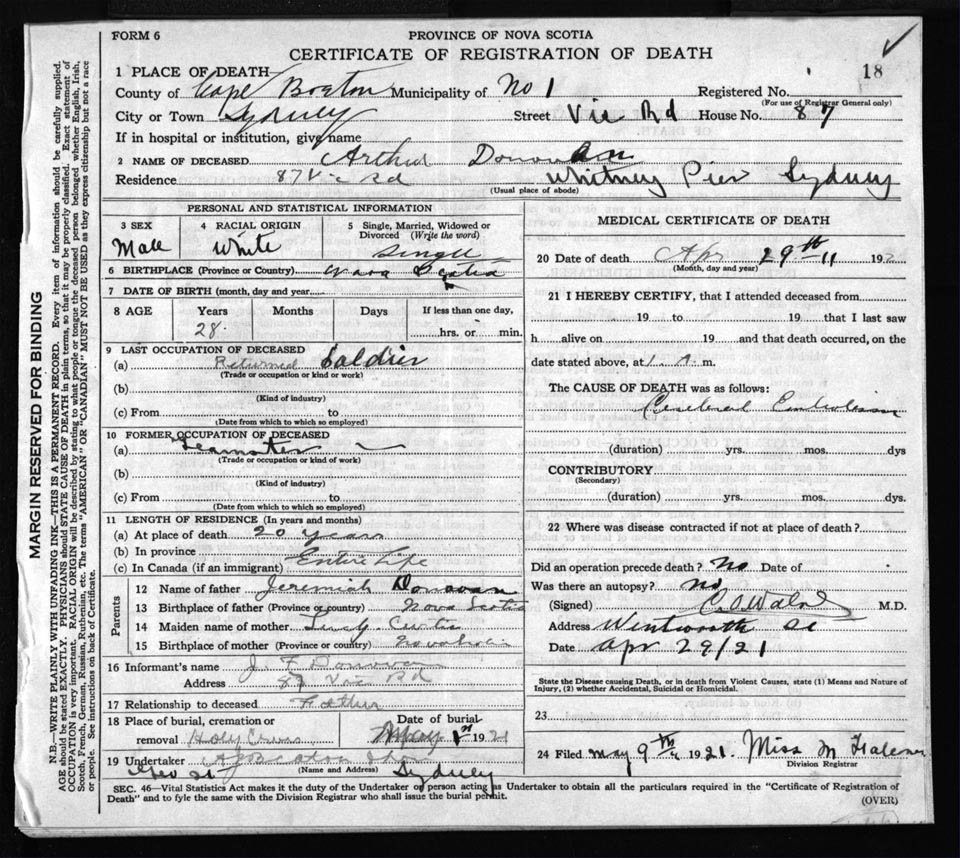 FORM 6
PROVINCE OF NOVA SCOTIA
CERTIFICATE OF REGISTRATION OF DEATH
18
1 PLACE OF DEATH
County of Cape Breton Municipality of No 1 Registered No.
(For use of Registrar General only)
City or Town Sydney Street Vic Rd House No. 87
If in hospital or institution, give name
2 NAME OF DECEASED Arthur Donovan
Residence 87 Vic Rd Whitney Pier Sydney
(Usual place of abode)
PERSONAL AND STATISTICAL INFORMATION
3 SEX
Male
4 RACIAL ORIGIN
White
5 Single, Married, Widowed or Divorced (Write the word)
Single
6 BIRTHPLACE (Province or Country) Nova Scotia
7 DATE OF BIRTH (month, day and year)
8 AGE Years Months Days If less than one day,
28 hrs. or min.
9 LAST OCCUPATION OF DECEASED
(a) Returned Soldier
(Trade or occupation or kind or work)
(b)
(Kind of industry)
(c) From to
(Date from which to which so employed)
10 FORMER OCCUPATION OF DECEASED
(a) Teamster
(Trade or occupation or kind of work)
(b)
(Kind of industry)
(c) From to
(Date from which to which so employed)
11 LENGTH OF RESIDENCE (In years and months)
(a) At place of death 20 years
(b) In province
(c) In Canada (if an immigrant) Entire Life
Parents
12 Name of father Jeremiah Donovan
13 Birthplace of father (Province or country) Nova Scotia
14 Maiden name of mother Lucy Curtis
15 Birthplace of mother (Province or country)
16 Informant's name J. F Donovan
Address 87 Vic Rd
17 Relationship to deceased Father
18 Place of burial, cremation or removal Holy Cross
Date of burial May 1st 1921
19 Undertaker
(Name and Address)
Geo St Sydney
MEDICAL CERTIFICATE OF DEATH
20 Date of death Apr 29th 192
(Month, day and year)
21 I HEREBY CERTIFY, that I attended deceased from
19 to 19 that I last saw
h alive on 19 and that death occurred, on the
date stated above, at 1 A. m.
The CAUSE OF DEATH was as follows:
Cerebral Embolism
(duration) yrs. mos. dys
CONTRIBUTORY
(Secondary)
(duration) yrs. mos. dys.
22 Where was disease contracted if not at place of death?
Did an operation precede death? No Date of
Was there an autopsy? No
(Signed) M.D.
Address Wentworth St
Date Apr 29/21
State the Disease causing Death, or in death from Violent Causes, state (1) Means and Nature of Injury, (2) whether Accidental, Suicidal or Homicidal.
23
24 Filed May 9th 1921. Miss M
Division Registrar
SEC. 46—Vital Statistics Act makes it the duty of the Undertaker or person acting as Undertaker to obtain all the particulars required in the "Certificate of Registration of
Death" and to fyle the same with the Division Registrar who shall issue the burial permit.
(OVER)
MARGIN RESERVED FOR BINDING
N.B.—WRITE PLAINLY WITH UNFADING INK—THIS IS A PERMANENT RECORD. Every item of information should be carefully supplied.
AGE should be stated EXACTLY. PHYSICIANS should STATE CAUSE OF DEATH in plain terms, so that it may be properly classified. Exact statement of
OCCUPATION is very important. RACIAL ORIGIN will be described by stating to what people or tongue the deceased person belonged whether English, Irish,
Scotch, French, German, Russian, Ruthenian, etc. The terms "AMERICAN" OR "CANADIAN" MUST NOT BE USED as they express citizenship but not a race
or people. See instructions on back of Certificate.